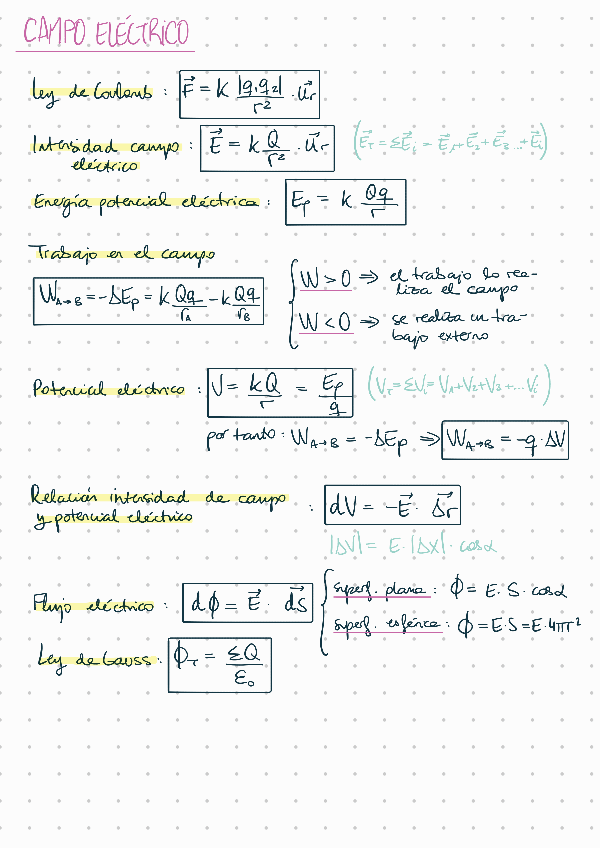 CAMPO ELÉCTRICO
Ley de Coulomb : F⃗ = K |q₁q₂|/r² · u⃗r
Intensidad campo eléctrico : E⃗ = K Q/r² · u⃗r (E⃗T = ΣE⃗i = E⃗1+E⃗2+E⃗3...+E⃗i)
Energía potencial eléctrica : Ep = K Qq/r
Trabajo en el campo
W A→B = -ΔEp = K Qq/rA - K Qq/rB
W > 0 ⇒ el trabajo lo rea-
liza el campo
W < 0 ⇒ se realiza un tra-
bajo externo
Potencial eléctrico : V = KQ/r = Ep/q (VT = ΣVi = V1+V2+V3+...Vi)
por tanto : W A→B = -ΔEp ⇒ W A→B = -q·ΔV
Relación intensidad de campo
y potencial eléctrico : dV = -E⃗ · Δ⃗r
|ΔV| = E·|ΔX|· cosα
Flujo eléctrico : dϕ = E⃗ · dS⃗
superf. plana : ϕ = E·S·cosα
superf. esférica : ϕ = E·S = E·4πr²
Ley de Gauss : ϕT = ΣQ/ε₀